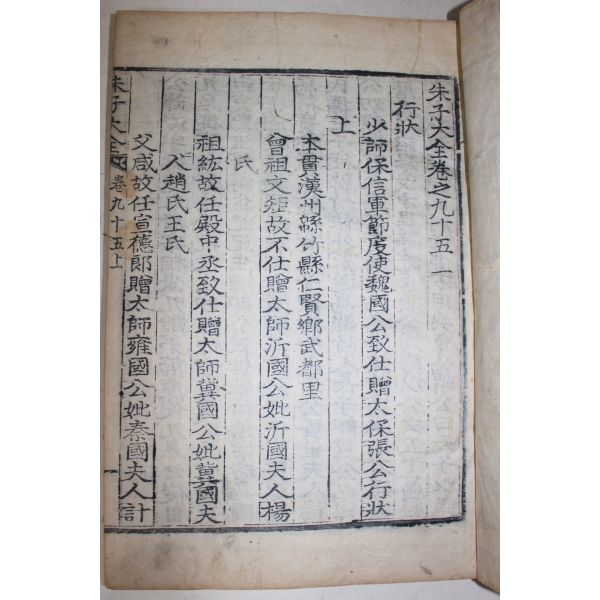 朱子大全卷之九十五一
行狀
少師保信軍節度使魏國公致仕贈太保張公行狀
上
本貫漢州綿竹縣仁賢鄉武都里
曾祖文矩故不仕贈太師沂國公妣沂國夫人楊
氏
祖紘故任殿中丞致仕贈太師冀國公妣冀國夫
人趙氏王氏
父咸故任宣德郞贈太師雍國公妣秦國夫人計
朱子大全 卷九十五上